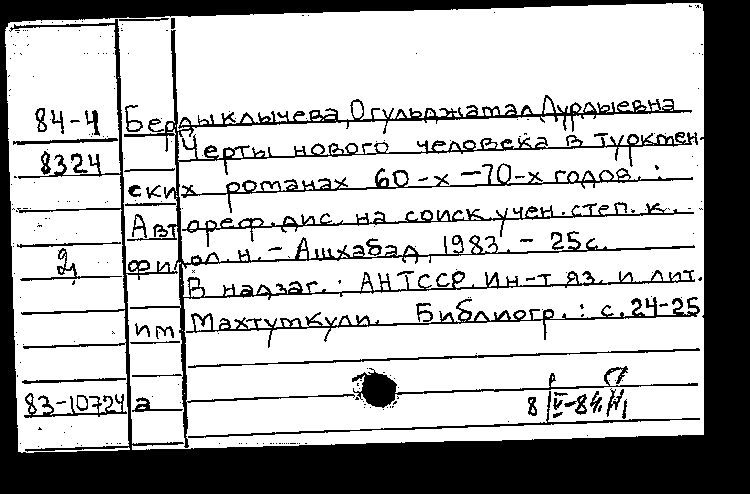 84-4 Бердыклычева, Огульджатал Дурдыевна
8324 Черты нового человека в туркмен-
ских романах 60-х -70-х годов. :
Автореф. дис. на соиск. учен. степ. к.
2, филол. н. - Ашхабад, 1983. - 25с.
В надзаг. : АН ТССР. Ин-т яз. и лит.
им. Махтумкули. Библиогр. : с. 24-25.
83-10724 а
8 IV-84.